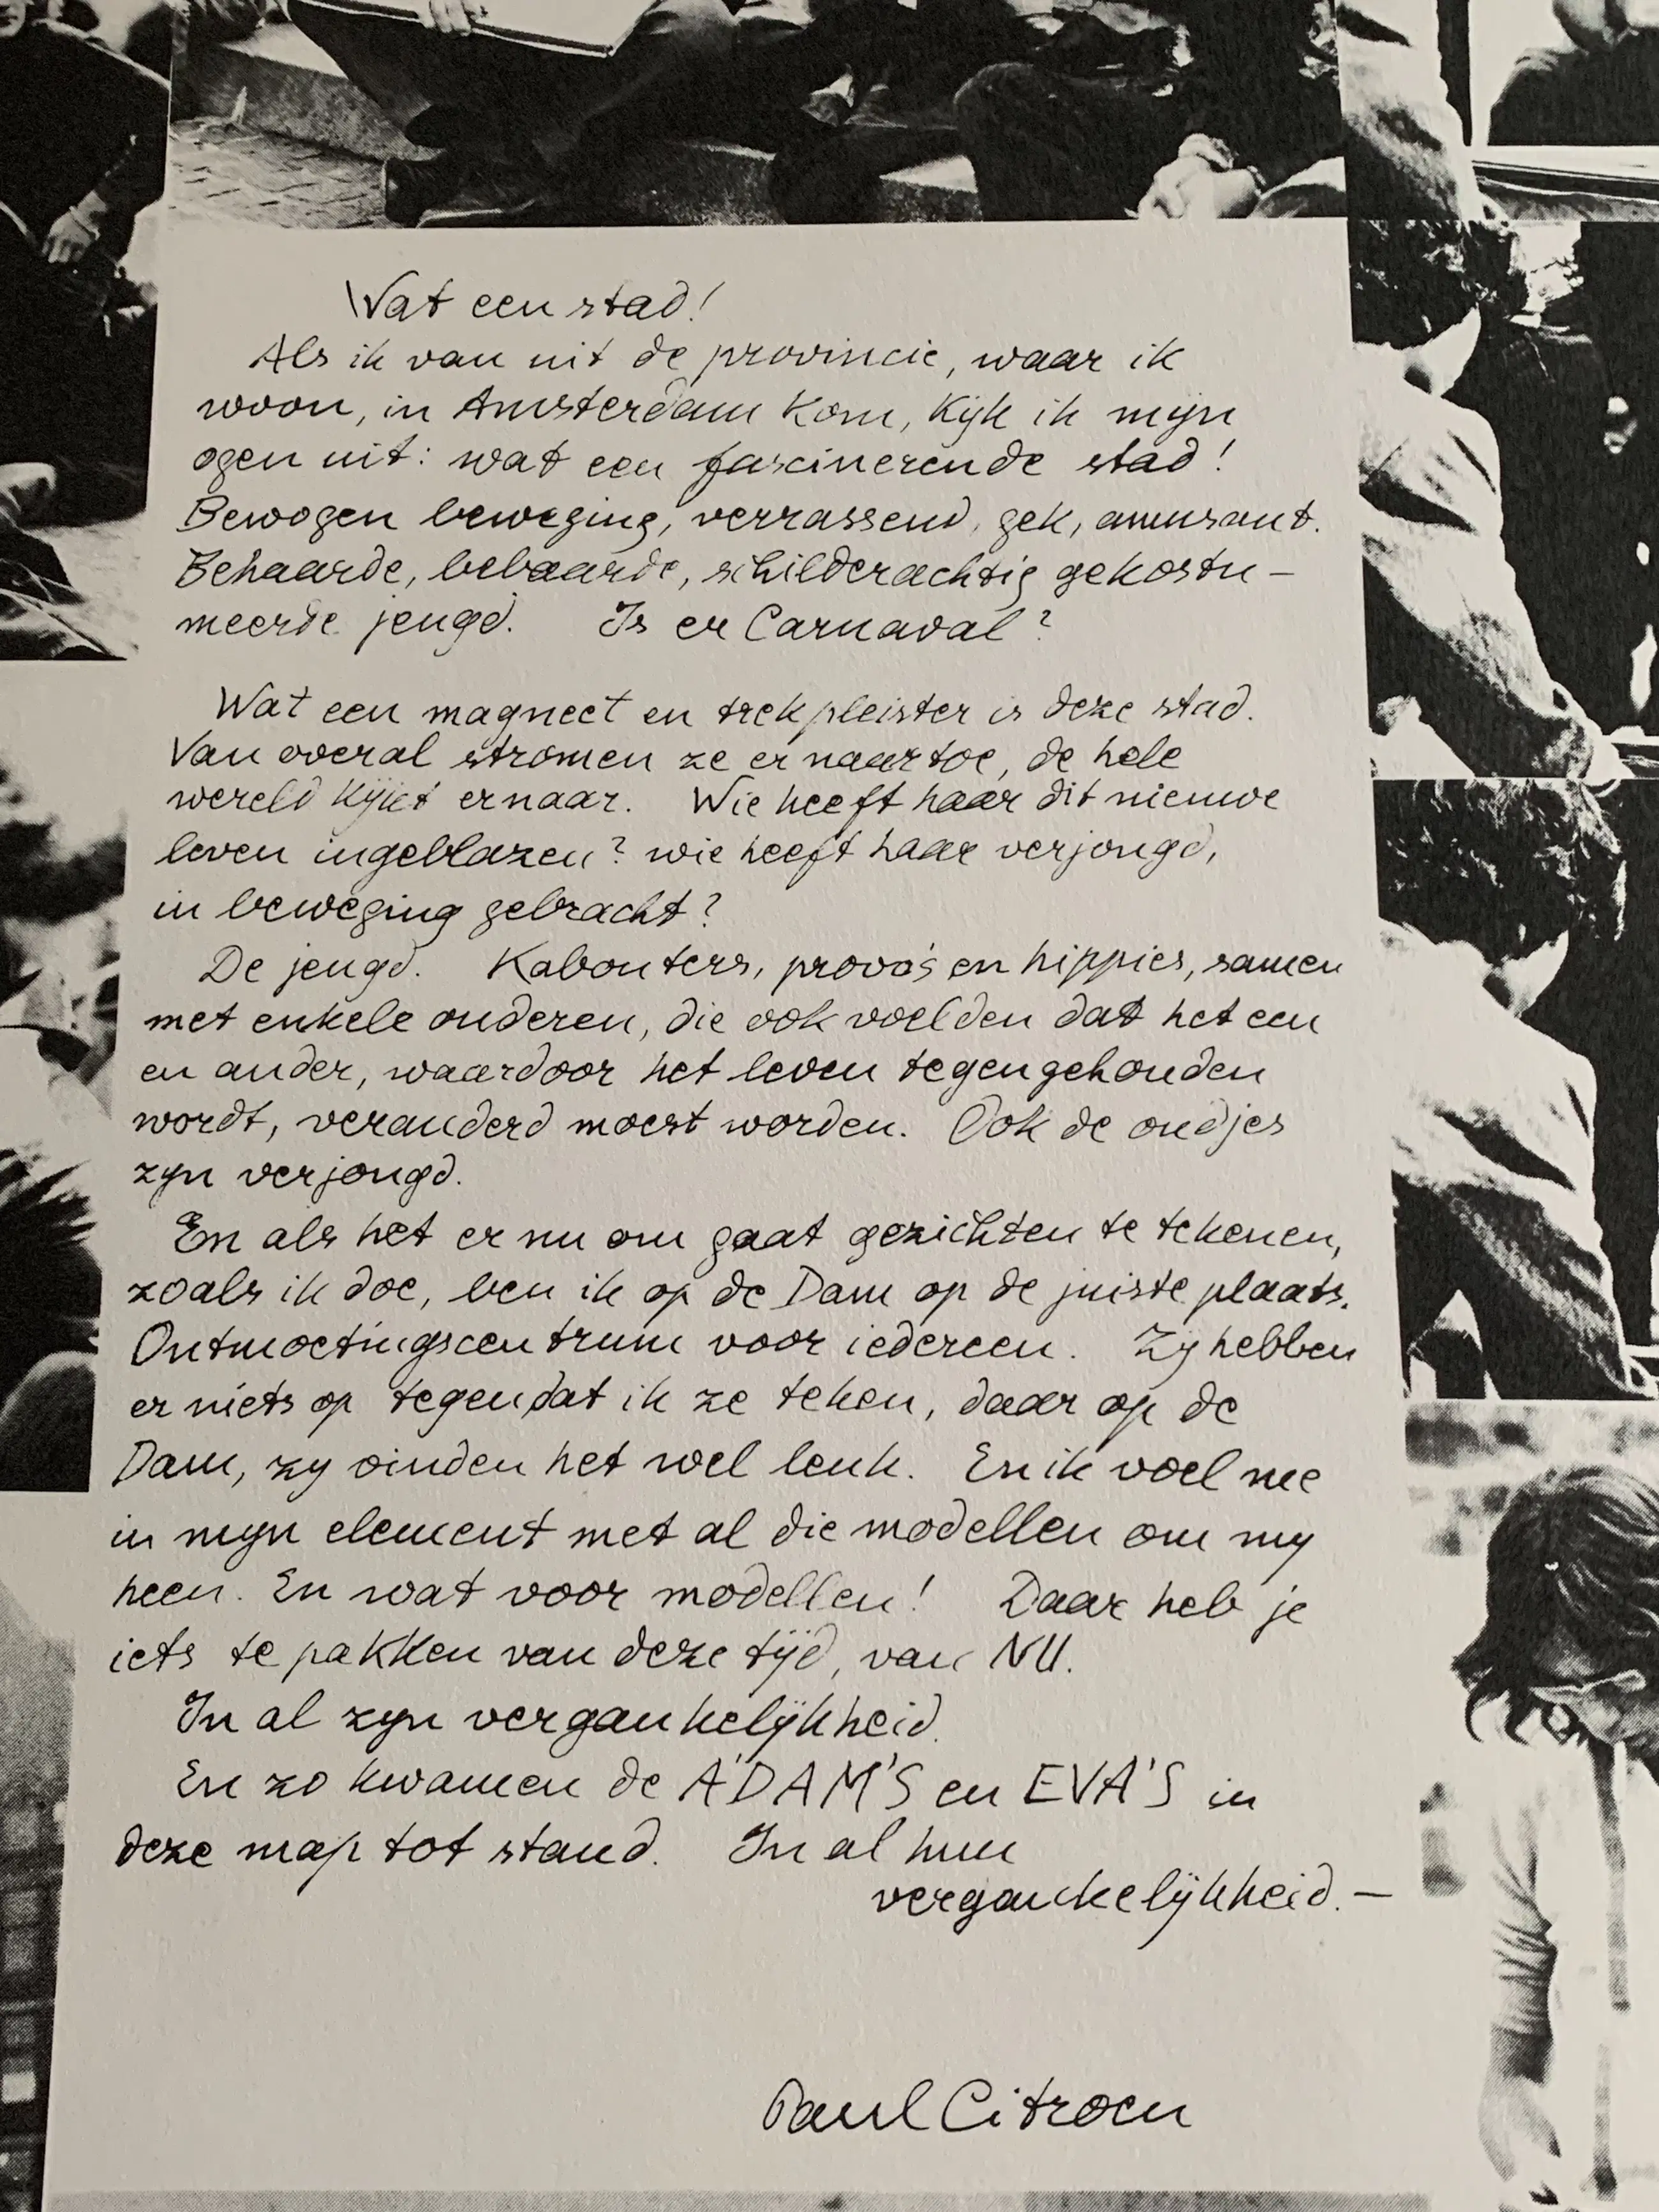 Wat een stad!
Als ik van uit de provincie, waar ik
woon, in Amsterdam kom, kijk ik mijn
ogen uit: wat een fascinerende stad!
Bewogen beweging, verrassend, gek, amusant.
Behaarde, bebaarde, schilderachtig gekostu-
meerde jeugd. Is er Carnaval?
Wat een magneet en trekpleister is deze stad.
Van overal stromen ze er naar toe, de hele
wereld kijkt ernaar. Wie heeft haar dit nieuwe
leven ingeblazen? wie heeft haar verjongd,
in beweging gebracht?
De jeugd. Kabouters, provo's en hippies, samen
met enkele ouderen, die ook voelden dat het een
en ander, waardoor het leven tegengehouden
wordt, veranderd moest worden. Ook de oudjes
zijn verjongd.
En als het er nu om gaat gezichten te tekenen,
zoals ik doe, ben ik op de Dam op de juiste plaats.
Ontmoetingscentrum voor iedereen. Zij hebben
er niets op tegen dat ik ze teken, daar op de
Dam, zij vinden het wel leuk. En ik voel me
in mijn element met al die modellen om mij
heen. En wat voor modellen! Daar heb je
iets te pakken van deze tijd, van NU.
In al zijn vergankelijkheid.
En zo kwamen de A'DAM'S en EVA'S in
deze map tot stand. In al hun
vergankelijkheid. —
Paul Citroen